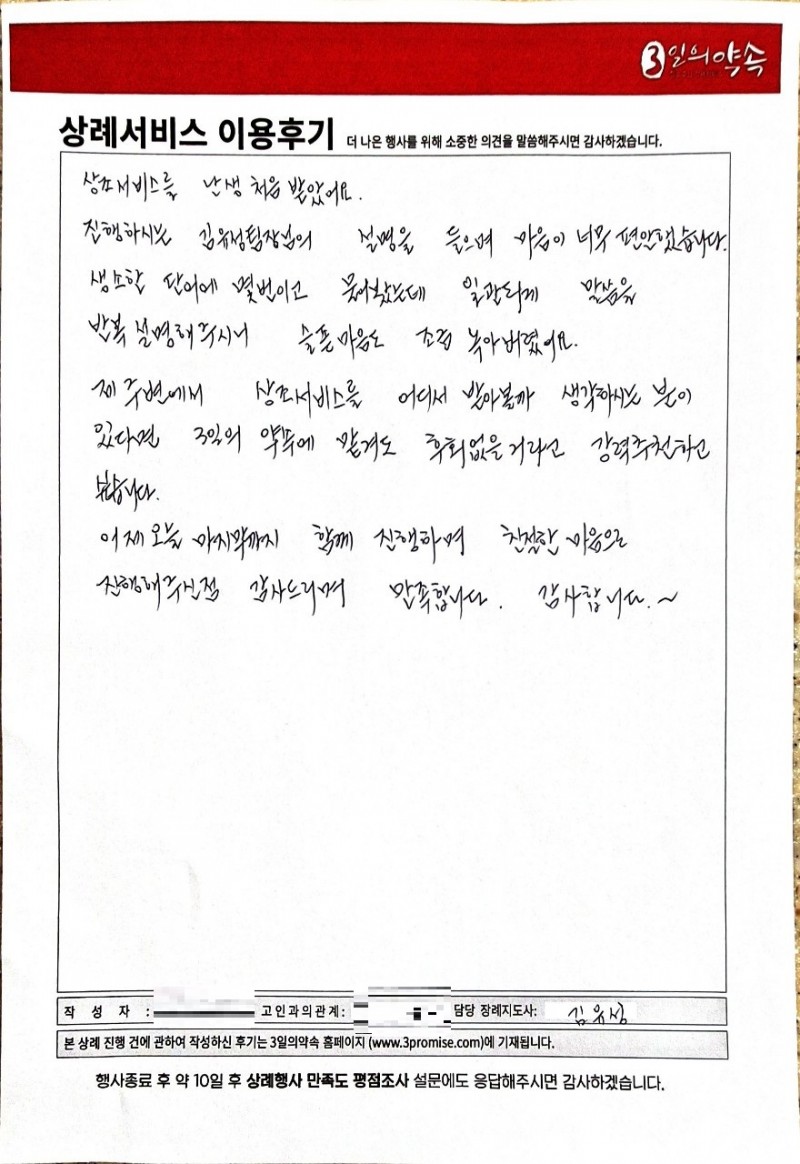 3일의약속
상례서비스 이용후기 더 나은 행사를 위해 소중한 의견을 말씀해주시면 감사하겠습니다.
상조서비스를 난생 처음 받았어요.
진행하시는 김유성팀장님의 설명을 들으며 마음이 너무 편안했습니다.
생소한 단어에 몇번이고 물어봤는데 일관되게 말씀을
반복 설명해주시니 슬픈마음도 조금 녹아버렸어요.
제 주변에서 상조서비스를 어디서 받아볼까 생각하시는 분이
있다면 3일의 약속에 맡겨도 후회없을거라고 강력추천하고
싶습니다.
이제 오늘 마지막까지 함께 진행하며 친절한 마음으로
진행해주신점 감사드리며 만족합니다. 감사합니다.~
작 성 자 : 고인과의관계: 담당 장례지도사: 김유성
본 상례 진행 건에 관하여 작성하신 후기는 3일의약속 홈페이지 (www.3promise.com)에 기재됩니다.
행사종료 후 약 10일 후 상례행사 만족도 평점조사 설문에도 응답해주시면 감사하겠습니다.